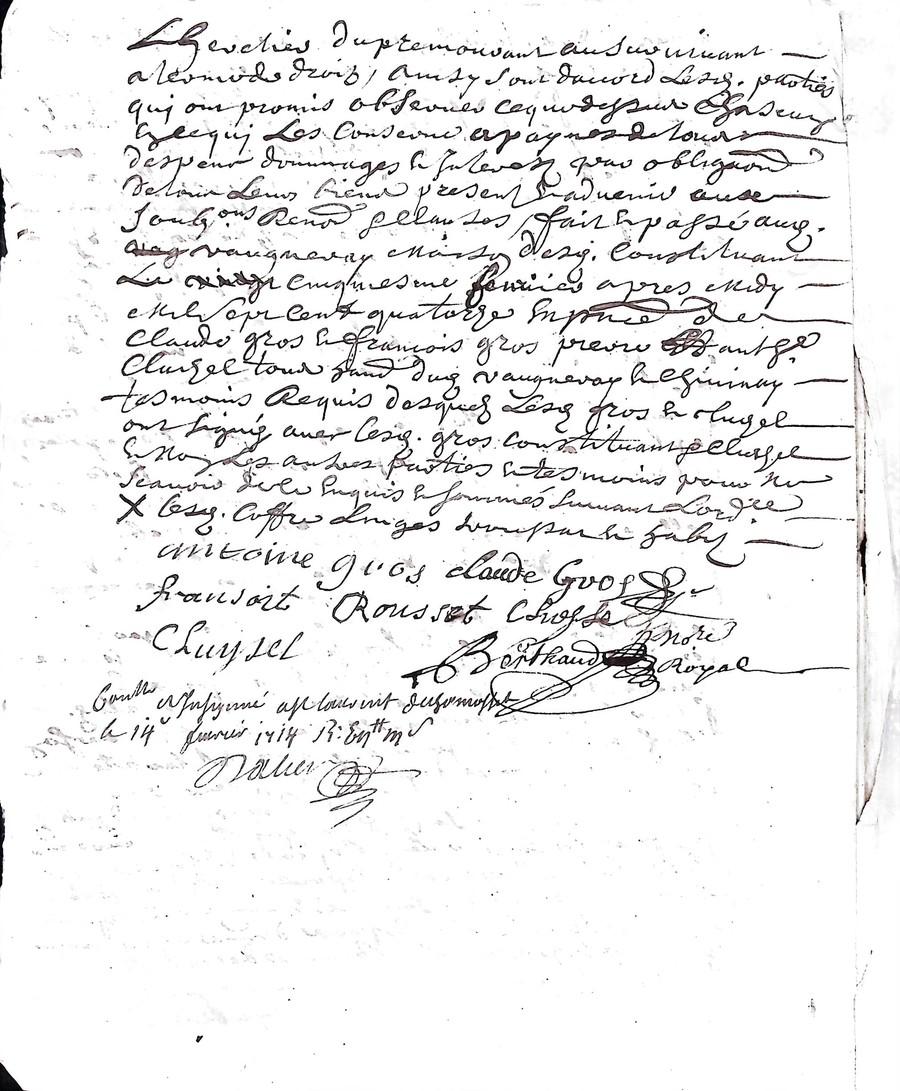 heretier du premourant au survivant
a la mode droit, Ainsy sont daccord Lesd. parties
qui ont promis observer ce que dessus Chascun
en ce qui Les Concerne a paynes de tous
despens dommages & Interests par obligaon
de tous Leurs biens present & advenir aux
Soubz.ons Renon. & Clauses, fait & passé aud.
vaugneray Maison desd. Constituant
Le cinquiesme fevrier apres Midy
Mil Sept Cent quatorze En pnce de
Claude gros & francois gros pierre anth.e
Clugel tous dud vaugneray &
tesmoins Requis desquels Lesd gros & clugel
ont signé avec Lesd. gros constituant & Clugel
& Non Les autres parties & tesmoins pour ne
Scavoir de ce Enquis & sommés suivant Lord.ce
X Lesd. Coffre Linges & habis
antoine gros claude Gros
fransoit Rousset
Cluysel
Berthaud Nore Royal
Con.lle & Insinué a St laurent de chamousset
le 14 fevrier 1714 R: